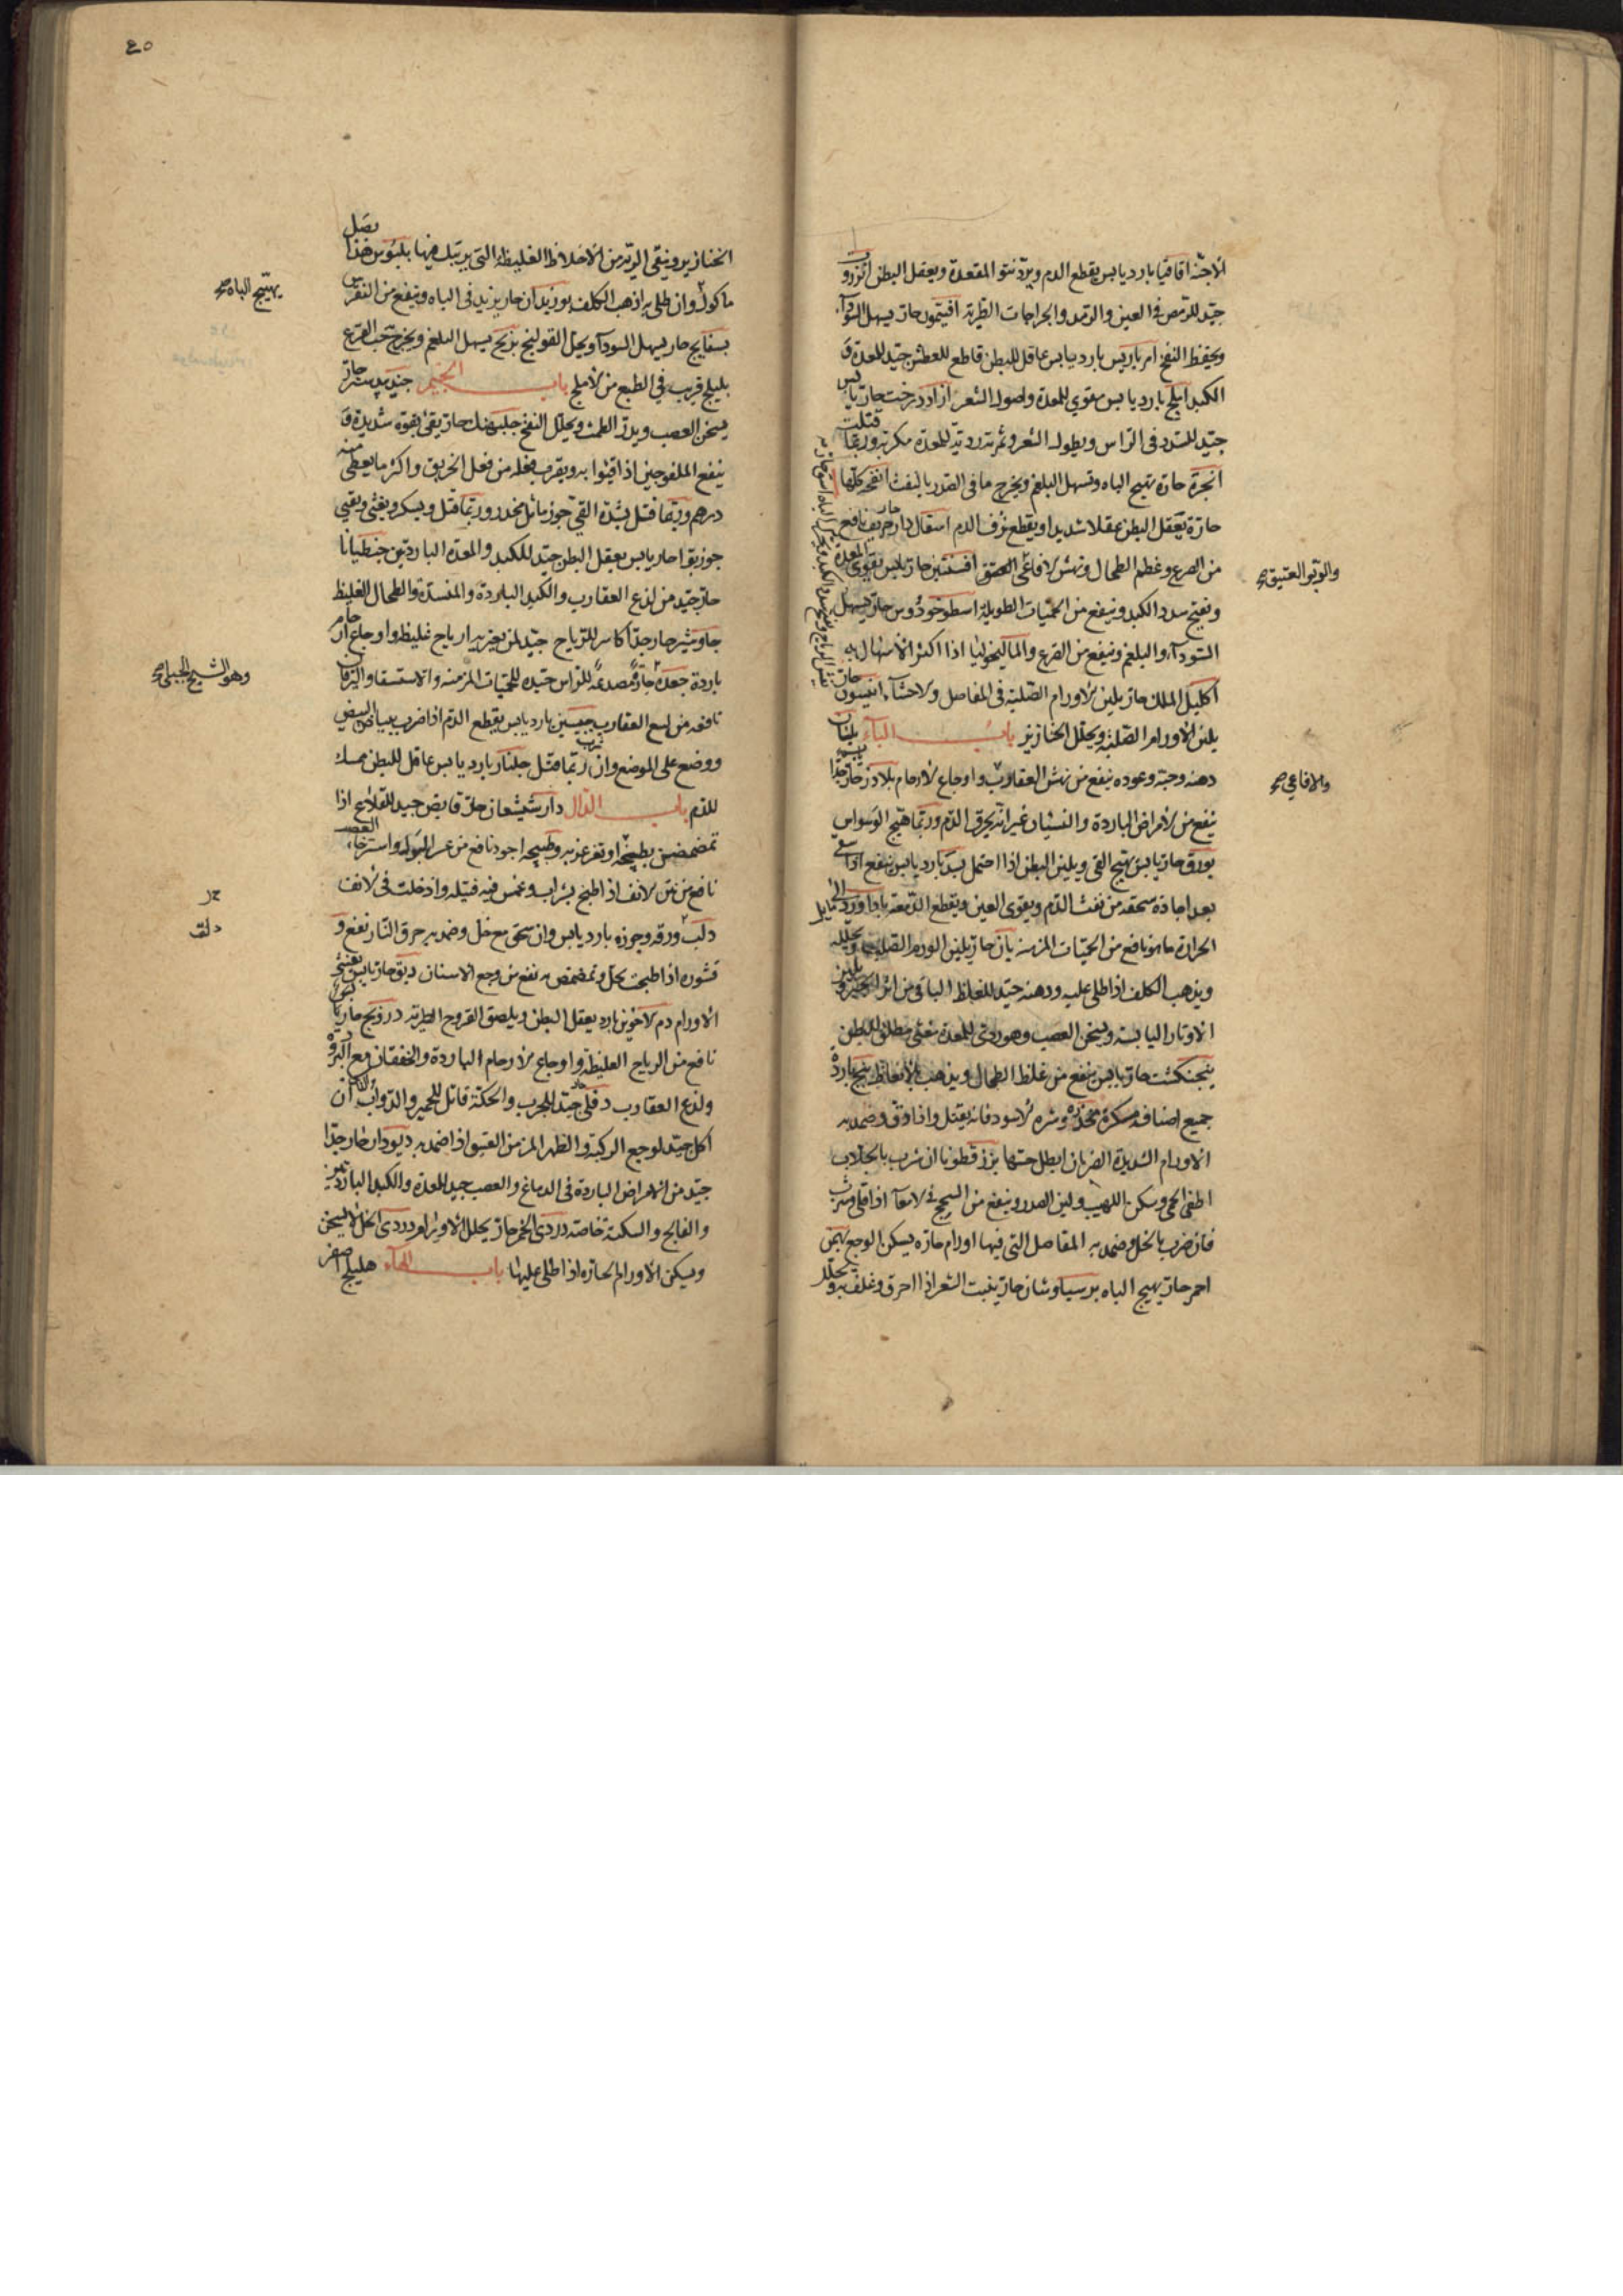 الاجنّة اقاقيا بارد يابس يقطع الدم ويردّ نتو المقعدة ويعقل البطن انزروت
جيّد للرّمص فى العين والرّمد والجراحات الطّريّة افتيمون حارّ يسهل السّودآء
ويحفظ النفخ امرباريس بارد يابس عاقل للبطن قاطع للعطش جيّد للمعدة و
الكبد املج بارد يابس مقوي للمعدة واصول الشعر ازاددرخت حارّ يابس
جيّد للسّدد فى الرّاس ويطول الشعر وثمرته رديّة للمعدة مكربة وربّما قتلت
انجرة حارّة تهيج الباه وتسهل البلغم ويخرج ما فى الصّدر بالنفث انفحة كلّها
حارّة يعقل البطن عقلا شديدا ويقطع نزف الدم اسقال حارّ حريف نافع
من الصرع وعظم الطحال ونهش الافاعى افسنتين حارّ يابس يقوى المعدة
والربو العتيق صح
ويفتح سدد الكبد وينفع من الحمّيات الطويلة اسطوخودوس حارّ يسهل
السّودآء والبلغم وينفع من الصّرع والماليخوليا اذا اكثر الاسهال به
اكليل الملك حارّ يلين الاورام الصّلبة فى المفاصل والاحشآء انيسون حارّ
يلين الاورام الصّلبة ويحلل الخنازير باب البآء بلسان
دهنه وحبّه وعوده ينفع من نهش العقارب واوجاع الارحام بلادر حارّ جدّا
والافاعي صح
ينفع من الامراض الباردة والنسيان غير انّه يحرق الدّم وربّما هيّج الوسواس
بورق حارّ يابس يهيّج القى ويلين البطن اذا احتمل بسّد بارد يابس ينفع اذا سقى
بعد اجادة سحقه من نفث الدّم ويقوى العين ويقطع الدّمعة باداورد الى
الحرارة ما هو نافع من الحمّيات المزمنة بان حارّ يلين الورم الصّلب
ويذهب الكلف اذا طلى عليه ودهنه جيّد للغلظ الباقى من اثر
الاوتار اليابسة ويسخن العصب وهو ردى للمعدة مغثى مطلق للبطن
بنجنكشت حارّ يابس ينفع من غلظ الطحال ويذهب بالانعاظ بنج بارد
جميع اصنافه مسكرة مخدّرة وشره الاسود فانه يقتل واذا دقّ وضمد به
الاورام الشديدة الضربان ابطل حسّها بزرقطونا ان شرب بالجلاب
اطفى الحمى وسكن اللهيب ولين الصدر وينفع من السحج فى الامعآ اذا قلى وشرب
فان ضرب بالخل وضمد به المفاصل التى فيها اورام حارّه يسكن الوجع بهمن
احمر حارّ يهيج الباه برسياوشان حارّ ينبت الشعر اذا احرق وغلف به ويحلل
٤٥
الخنازير وينقى الريّة من الاخلاط الغليظة التى يرتبك فيها بلبوس هذا بصل
ماكول وان طلى به اذهب الكلف بوزيدان حار يزيد فى الباه وينفع من النقرس
يهيّج الباه صح
بسفايج حار يسهل السودآء ويحل القولنج برنج يسهل البلغم ويخرج حب القرع
بليلج قريب فى الطبع من الاملج باب الجيم جندبيدستر حارّ
يسخن العصب ويدرّ الطمث ويحلل النفخ جبلهنك حارّ يقئ بقوّه شديدة و
ينفع الملفوجين اذا اقيئوا به ويقرب فعله من فعل الخربق واكثر ما يعطى منه
درهم وربّما قتل بشدّة القئ جوز ماثل مخدر وربّما قتل ويسكر ويغثى ويقيئ
جوز بوّا حار يابس يعقل البطن جيّد للكبد والمعدة الباردتين جنطيانا
حارّ جيّد من لذع العقارب والكبد الباردة والمنسدّة والطحال الغليظ
جاوشير حار جدّا كاسر للرّياح جيّد لمن يعتريه ارياح غليظة واوجاع ارحام
باردة جعدة حارّة مصدعة للرّاس جيّده للحمّيات المزمنه والاستسقا واليرقان
وهو الشيح الجبلى صح
نافعه من لسع العقارب جبسين بارد يابس يقطع الدّم اذا ضرب ببياض البيض
ووضع على الموضع وان شرب ربّما قتل جلنار بارد يابس عاقل للبطن ممسك
للدم باب الدال دارشيشعان حارّ قابض جيد للقلاع اذا
تمضمض بطبيخه او تغرغر به وطبيخه اجود نافع من عسر البول واسترخاء العصب
نافع من نتن الانف اذا طبخ بشراب وغمس فيه فتيله وادخلت فى الانف
دلب ورقه وجوزه بارد يابس وان سحق مع خل وضمد به حرق النّار نفع و
دلف
قشوره اذا طبخت بخل وتمضمض به نفع من وجع الاسنان دبق حارّ يابس
الاورام دم الاخوين بارد يعقل البطن ويلصق القروح الطّريّة درونج حار يابس
نافع من الرياح الغليظة واوجاع الارحام الباردة والخفقان مع البرودة
ولذع العقارب دفلى جيّد للجرب والحكّة قاتل للحمير والدّوابّ ان
اكل جيّد لوجع الركبة والظهر المزمن العتيق اذا ضمد به ديودار حار جدّا
جيّد من الامراض الباردة فى الدماغ والعصب جيد للمعدة والكبد الباردتين
والفالج والسكتة خاصة دردى الخمر حارّ يحلل الاورام دردى الخل لا يسخن
ويسكن الاورام الحارّه اذا طلى عليها باب الهآء هليلج اصفر